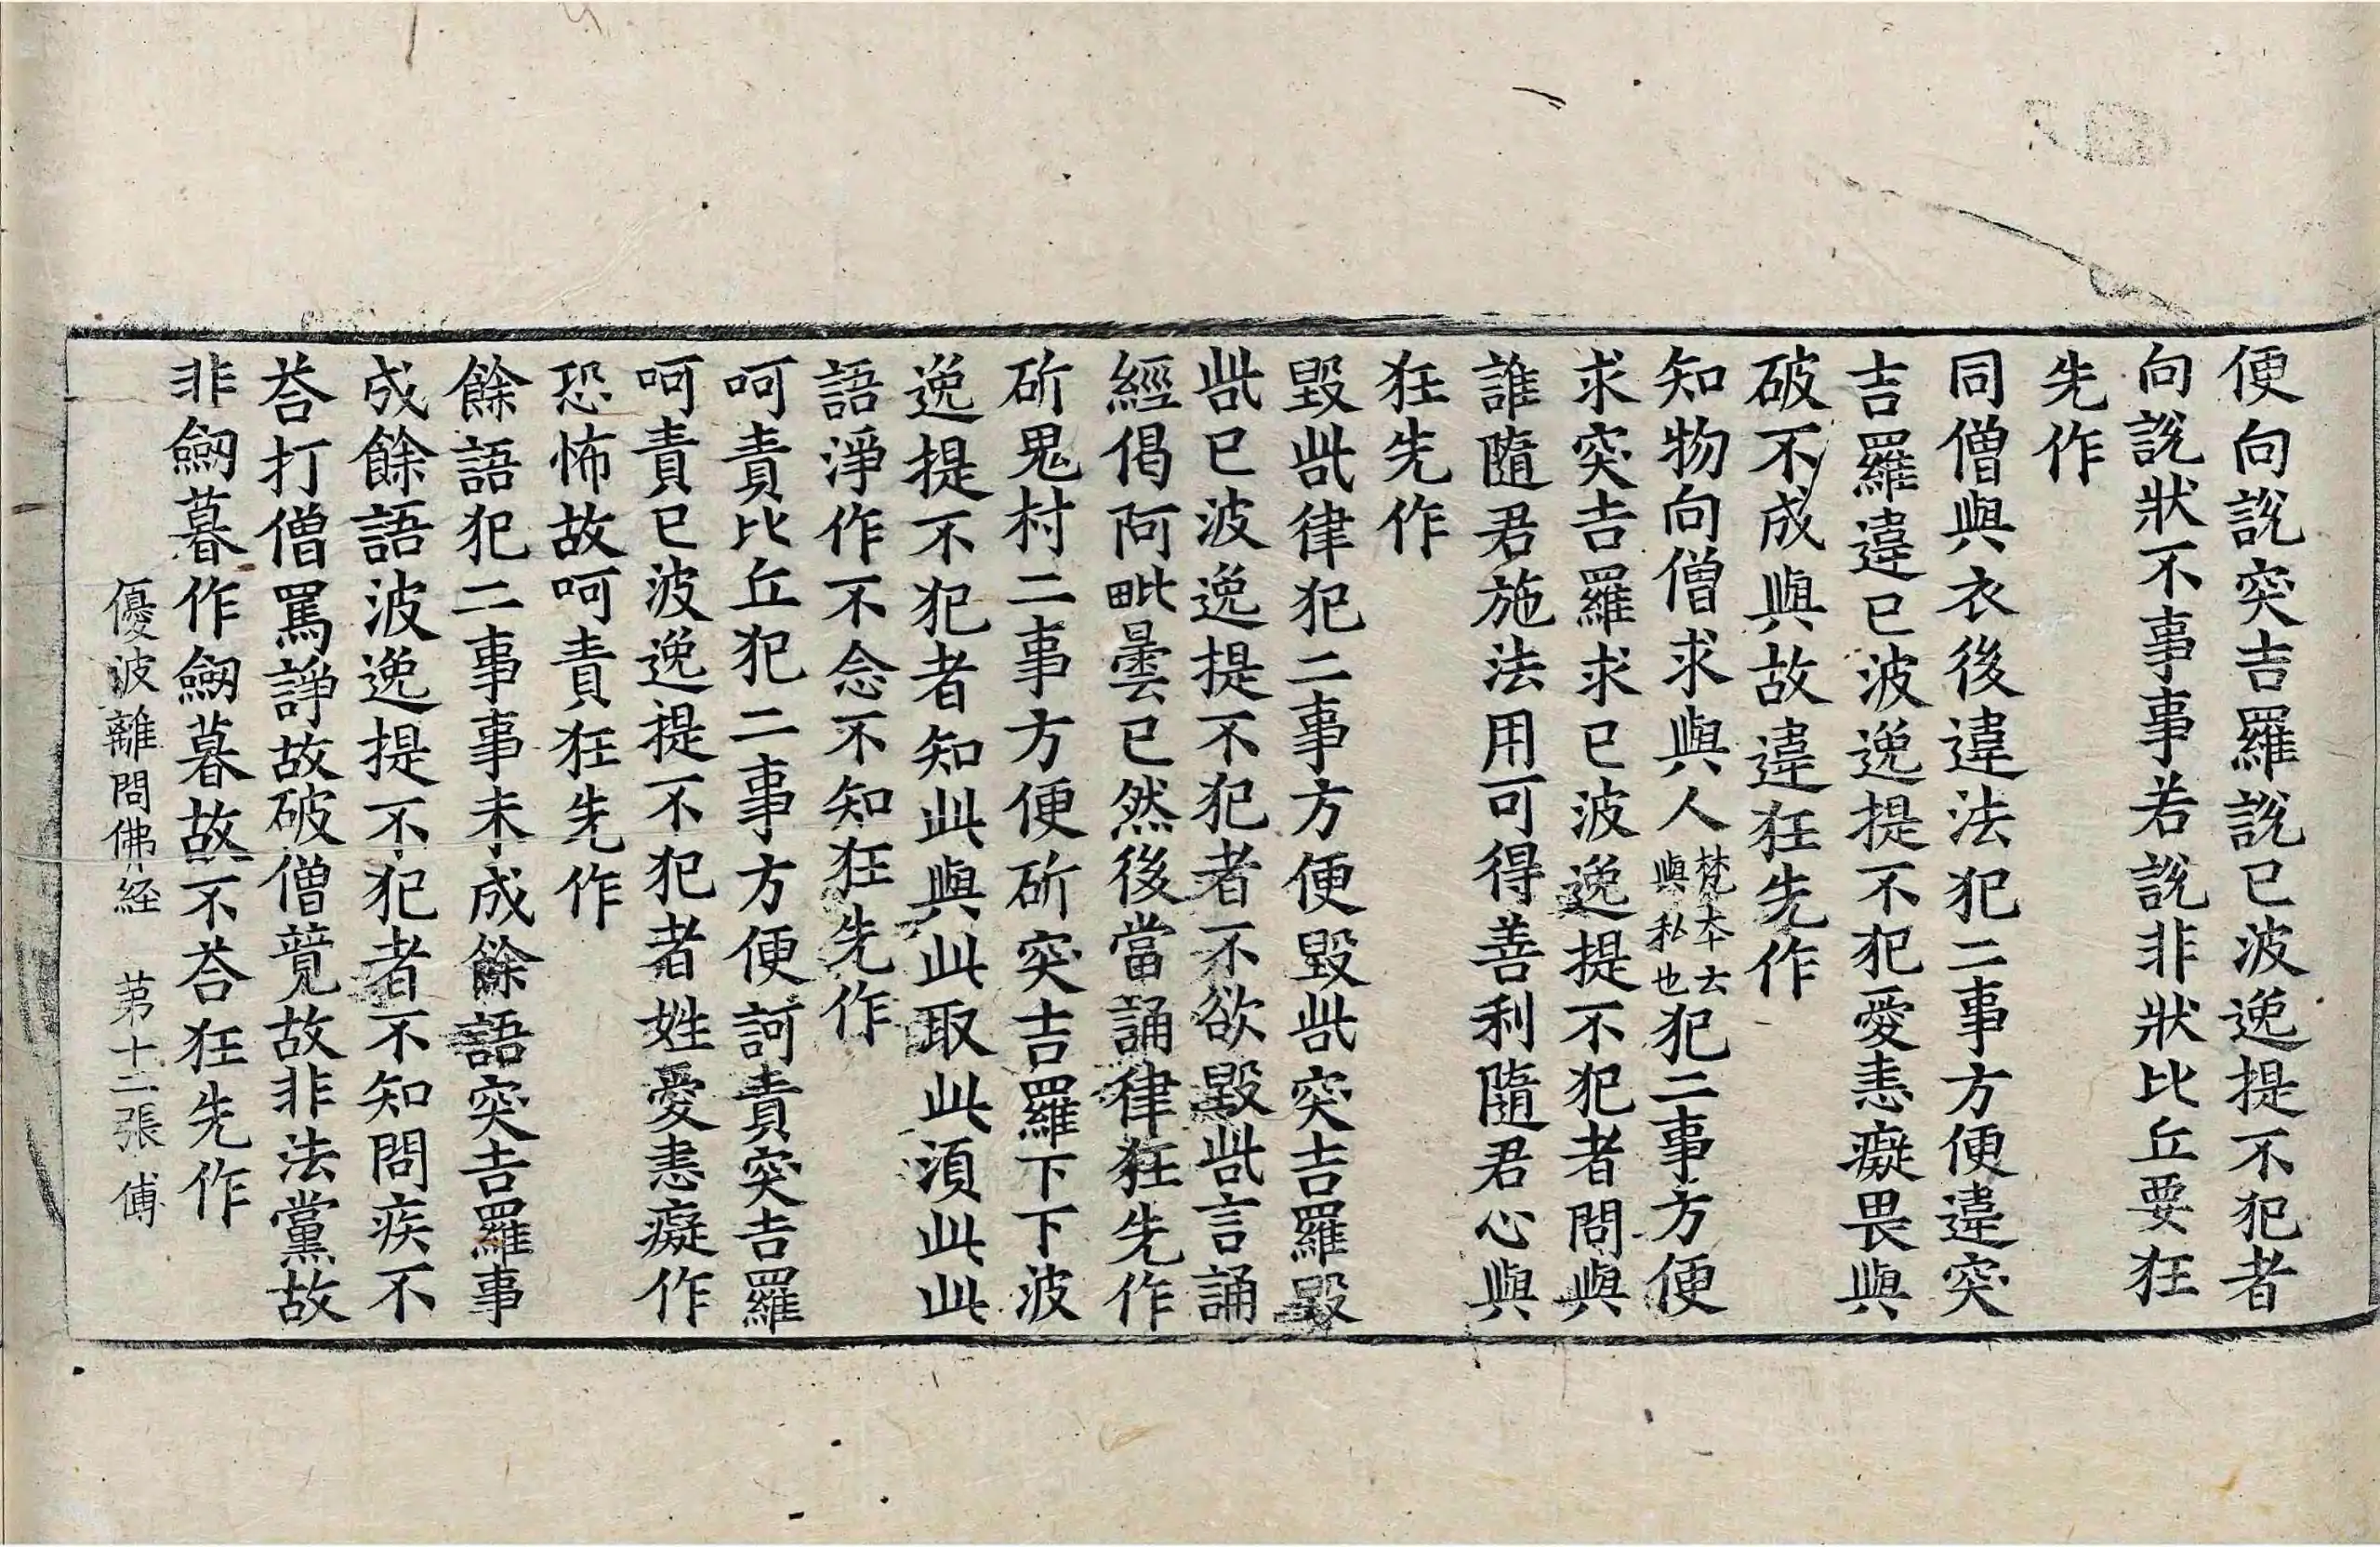 便向說突吉羅說已波逸提不犯者
向說狀不事事若說非狀比丘要狂
先作
同僧與衣後違法犯二事方便違突
吉羅違已波逸提不犯愛恚癡畏與
破不成與故違狂先作
知物向僧求與人梵本云與私也犯二事方便
求突吉羅求已波逸提不犯者問與
誰隨君施法用可得善利隨君心與
狂先作
毀呰律犯二事方便毀呰突吉羅毀
呰已波逸提不犯者不欲毀呰言誦
經偈阿毗曇已然後當誦律狂先作
斫鬼村二事方便斫突吉羅下下波
逸提不犯者知此與此取此湏此此
語淨作不念不知狂先作
呵責比丘犯二事方便訶責突吉羅
呵責已波逸提不犯者姓愛恚癡作
恐怖故呵責狂先作
餘語犯二事事未成餘語突吉羅事
成餘語波逸提不犯者不知問疾不
荅打僧罵諍故破僧競故非法黨故
非劒暮作劒暮故不荅狂先作
優波離問佛経　苐十二張　傅